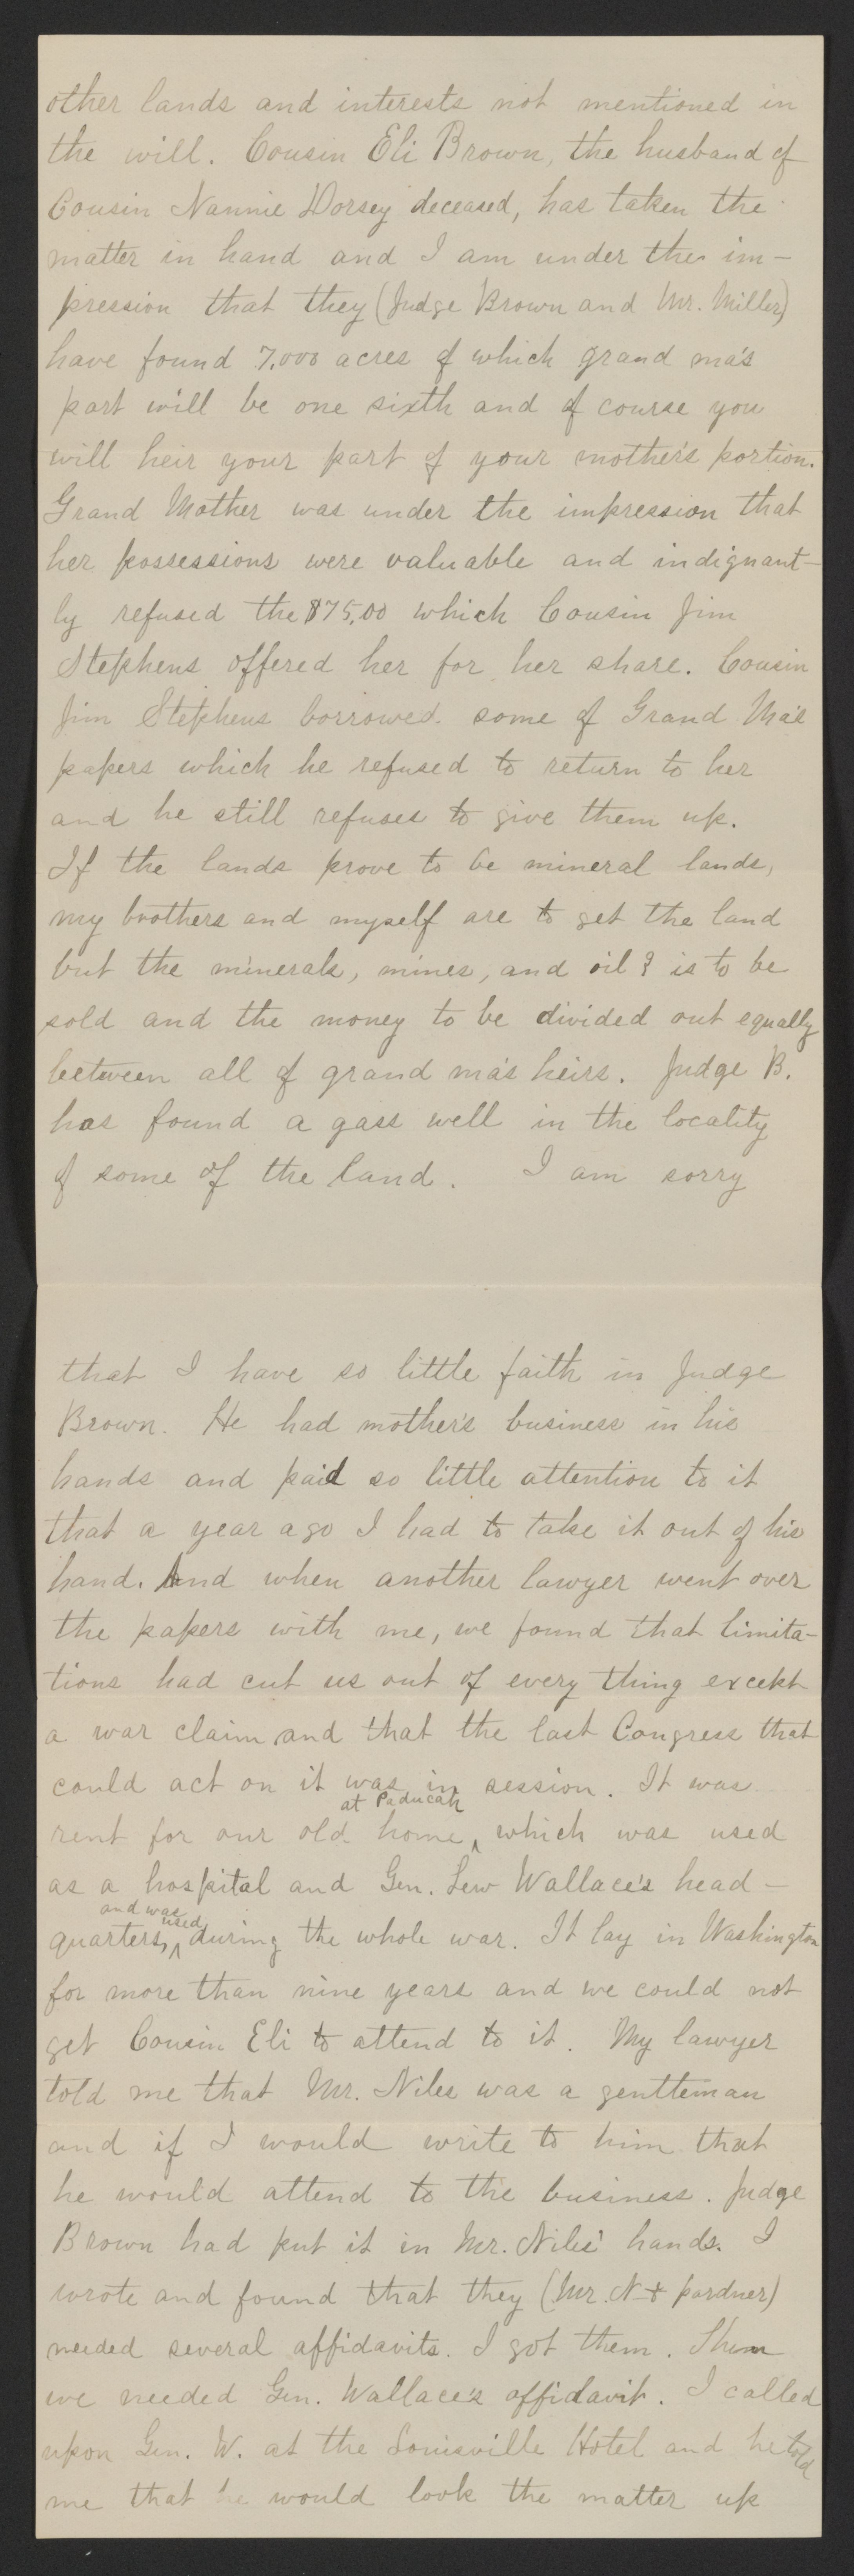 other lands and interests not mentioned in
the will. Cousin Eli Brown, the husband of
Cousin Nannie Dorsey deceased, has taken the
matter in hand and I am under the im-
pression that they (Judge Brown and Mr. Miller)
have found 7,000 acres of which grand ma's
part will be one sixth and of course you
will heir your part of your mother's portion.
Grand Mother was under the impression that
her possessions were valuable and indignant-
ly refused the $75.00 which Cousin Jim
Stephens offered her for her share. Cousin
Jim Stephens borrowed some of Grand Ma's
papers which he refused to return to her
and he still refuses to give them up.
If the lands prove to be mineral lands,
my brothers and myself are to get the land
but the minerals, mines, and oil? is to be
sold and the money to be divided out equally
between all of grand ma's heirs. Judge B.
has found a gass well in the locality
of some of the land. I am sorry
that I have so little faith in Judge
Brown. He had mother's business in his
hands and paid so little attention to it
that a year ago I had to take it out of his
hand. And when another lawyer went over
the papers with me, we found that limita-
tions had cut us out of every thing except
a war claim and that the last Congress that
could act on it was in session. It was
at Paducah
rent for our old home, which was used
as a hospital and Gen. Lew Wallace's head-
and was used
quarters, during the whole war. It lay in Washington
for more than nine years and we could not
get Cousin Eli to attend to it. My lawyer
told me that Mr. Niles was a gentleman
and if I would write to him that
he would attend to the business. Judge
Brown had put it in Mr. Niles' hands. I
wrote and found that they (Mr. N & pardner)
needed several affidavits. I got them. Then
we needed Gen. Wallace's affidavit. I called
upon Gen. W. at the Louisville Hotel and he told
me that he would look the matter up